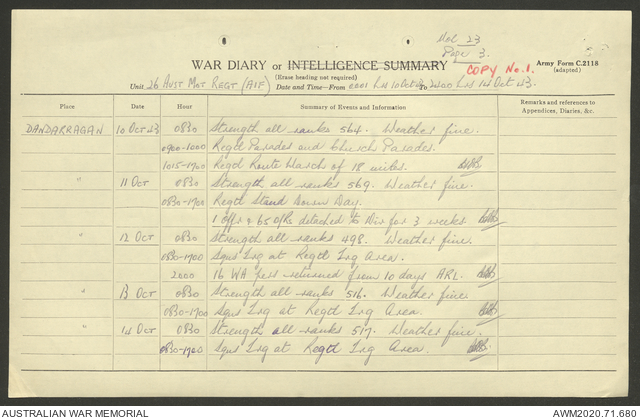 Vol 23
Page 3.
WAR DIARY or INTELLIGENCE SUMMARY
Army Form C.2118
(adapted)
(Erase heading not required)
COPY No. 1.
Unit 26 Aust Mot Regt (AIF) Date and Time—From 0001 hrs 10 Oct 43 To 2400 hrs 14 Oct 43.
Place Date Hour Summary of Events and Information Remarks and references to
Appendices, Diaries, &c.
DANDARRAGAN 10 Oct 43 0830 Strength all ranks 564. Weather fine.
0900-1000 Regtl Parades and Church Parades.
1015-1700 Regtl Route March of 18 miles.
" 11 Oct 0830 Strength all ranks 569. Weather fine.
0830-1700 Regtl Stand Down Day.
1 Offr & 65 ORs detached to Div for 3 weeks
" 12 Oct 0830 Strength all ranks 498. Weather fine.
0830-1700 Sqns Trg at Regtl Trg Area.
2000 16 WA pers returned from 10 days ARL.
" 13 Oct 0830 Strength all ranks 516. Weather fine
0830-1700 Sqns Trg at Regtl Trg Area.
" 14 Oct 0830 Strength all ranks 517. Weather fine.
0830-1700 Sqns Trg at Regtl Trg Area.
AUSTRALIAN WAR MEMORIAL AWM2020.71.680